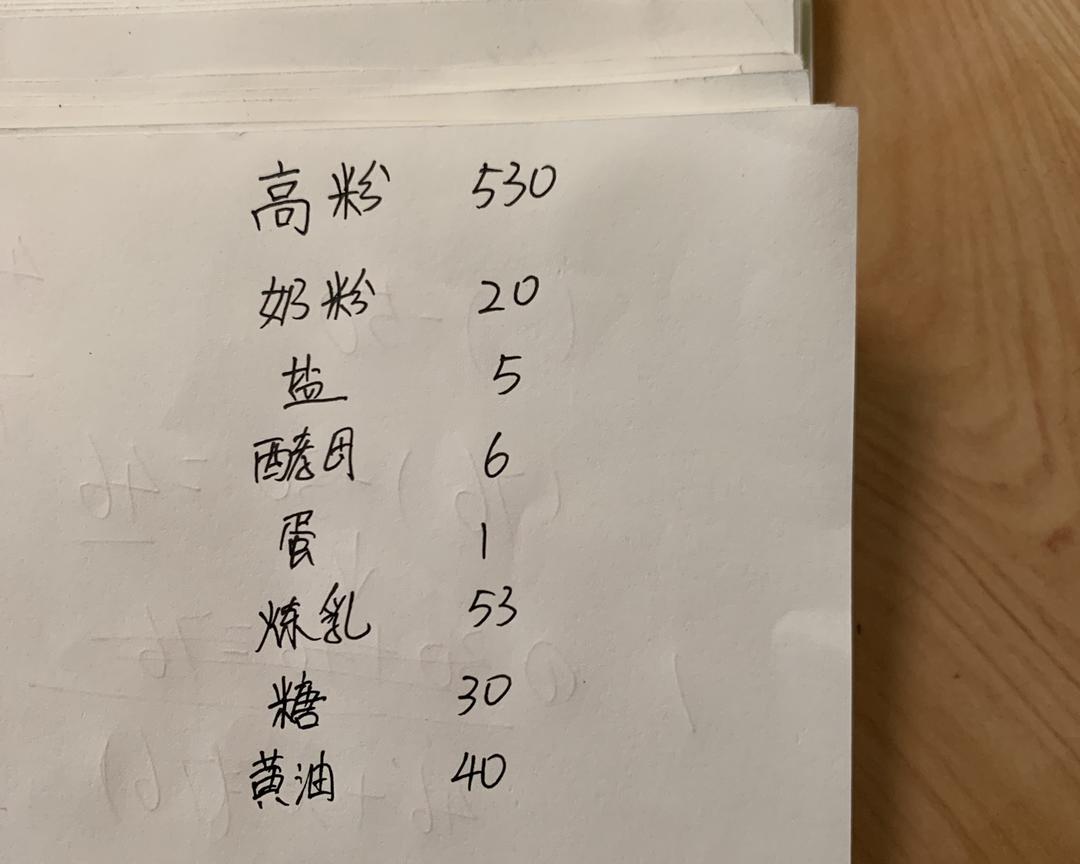 高粉 530
奶粉 20
盐 5
酵母 6
蛋 1
炼乳 53
糖 30
黄油 40